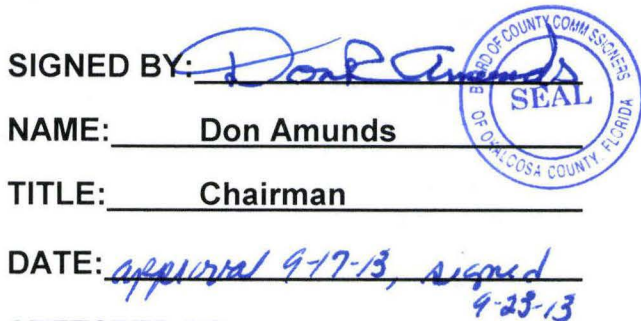 SIGNED BY: Don R Amunds
BOARD OF COUNTY COMMISSIONERS
SEAL
OF OKALOOSA COUNTY, FLORIDA
NAME: Don Amunds
TITLE: Chairman
DATE: approval 9-17-13, signed
9-23-13